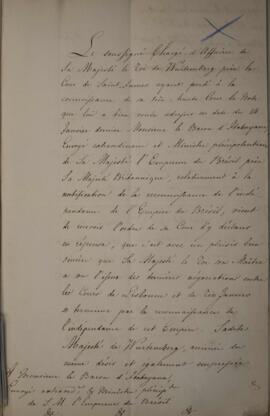 Le soussigné Chargé d'Affaires de
Sa Majesté le Roi de Wurtemberg près la
Cour de Saint James ayant porté à la
connaissance de sa très haute Cour la Note
que lui a bien voulu adresser en date du
Janvier dernier Monsieur le Baron d'Itabayana
Envoyé extraordinaire et Ministre plénipotentiaire
de Sa Majesté l'Empereur du Brésil près
Sa Majesté Britannique, relativement à la
notification de la reconnaissance de l'indé-
pendance de l'Empire du Brésil, vient
de recevoir l'ordre de sa Cour d'y déclarer
en réponse, que c'est avec un plaisir bien
sincère que Sa Majesté le Roi son Maître
a vu l'issue des dernières négociations entre
les Cours de Lisbonne et de Rio Janeiro
se terminer par la reconnaissance de
l'indépendance de cet Empire. Sadite
Majesté de Wurtemberg, animée du
même désir et également empressée
A Monsieur le Baron d'Itabayana
Envoyé extraord. & Ministre plénipot.
de S. M. l'Empereur du Brésil